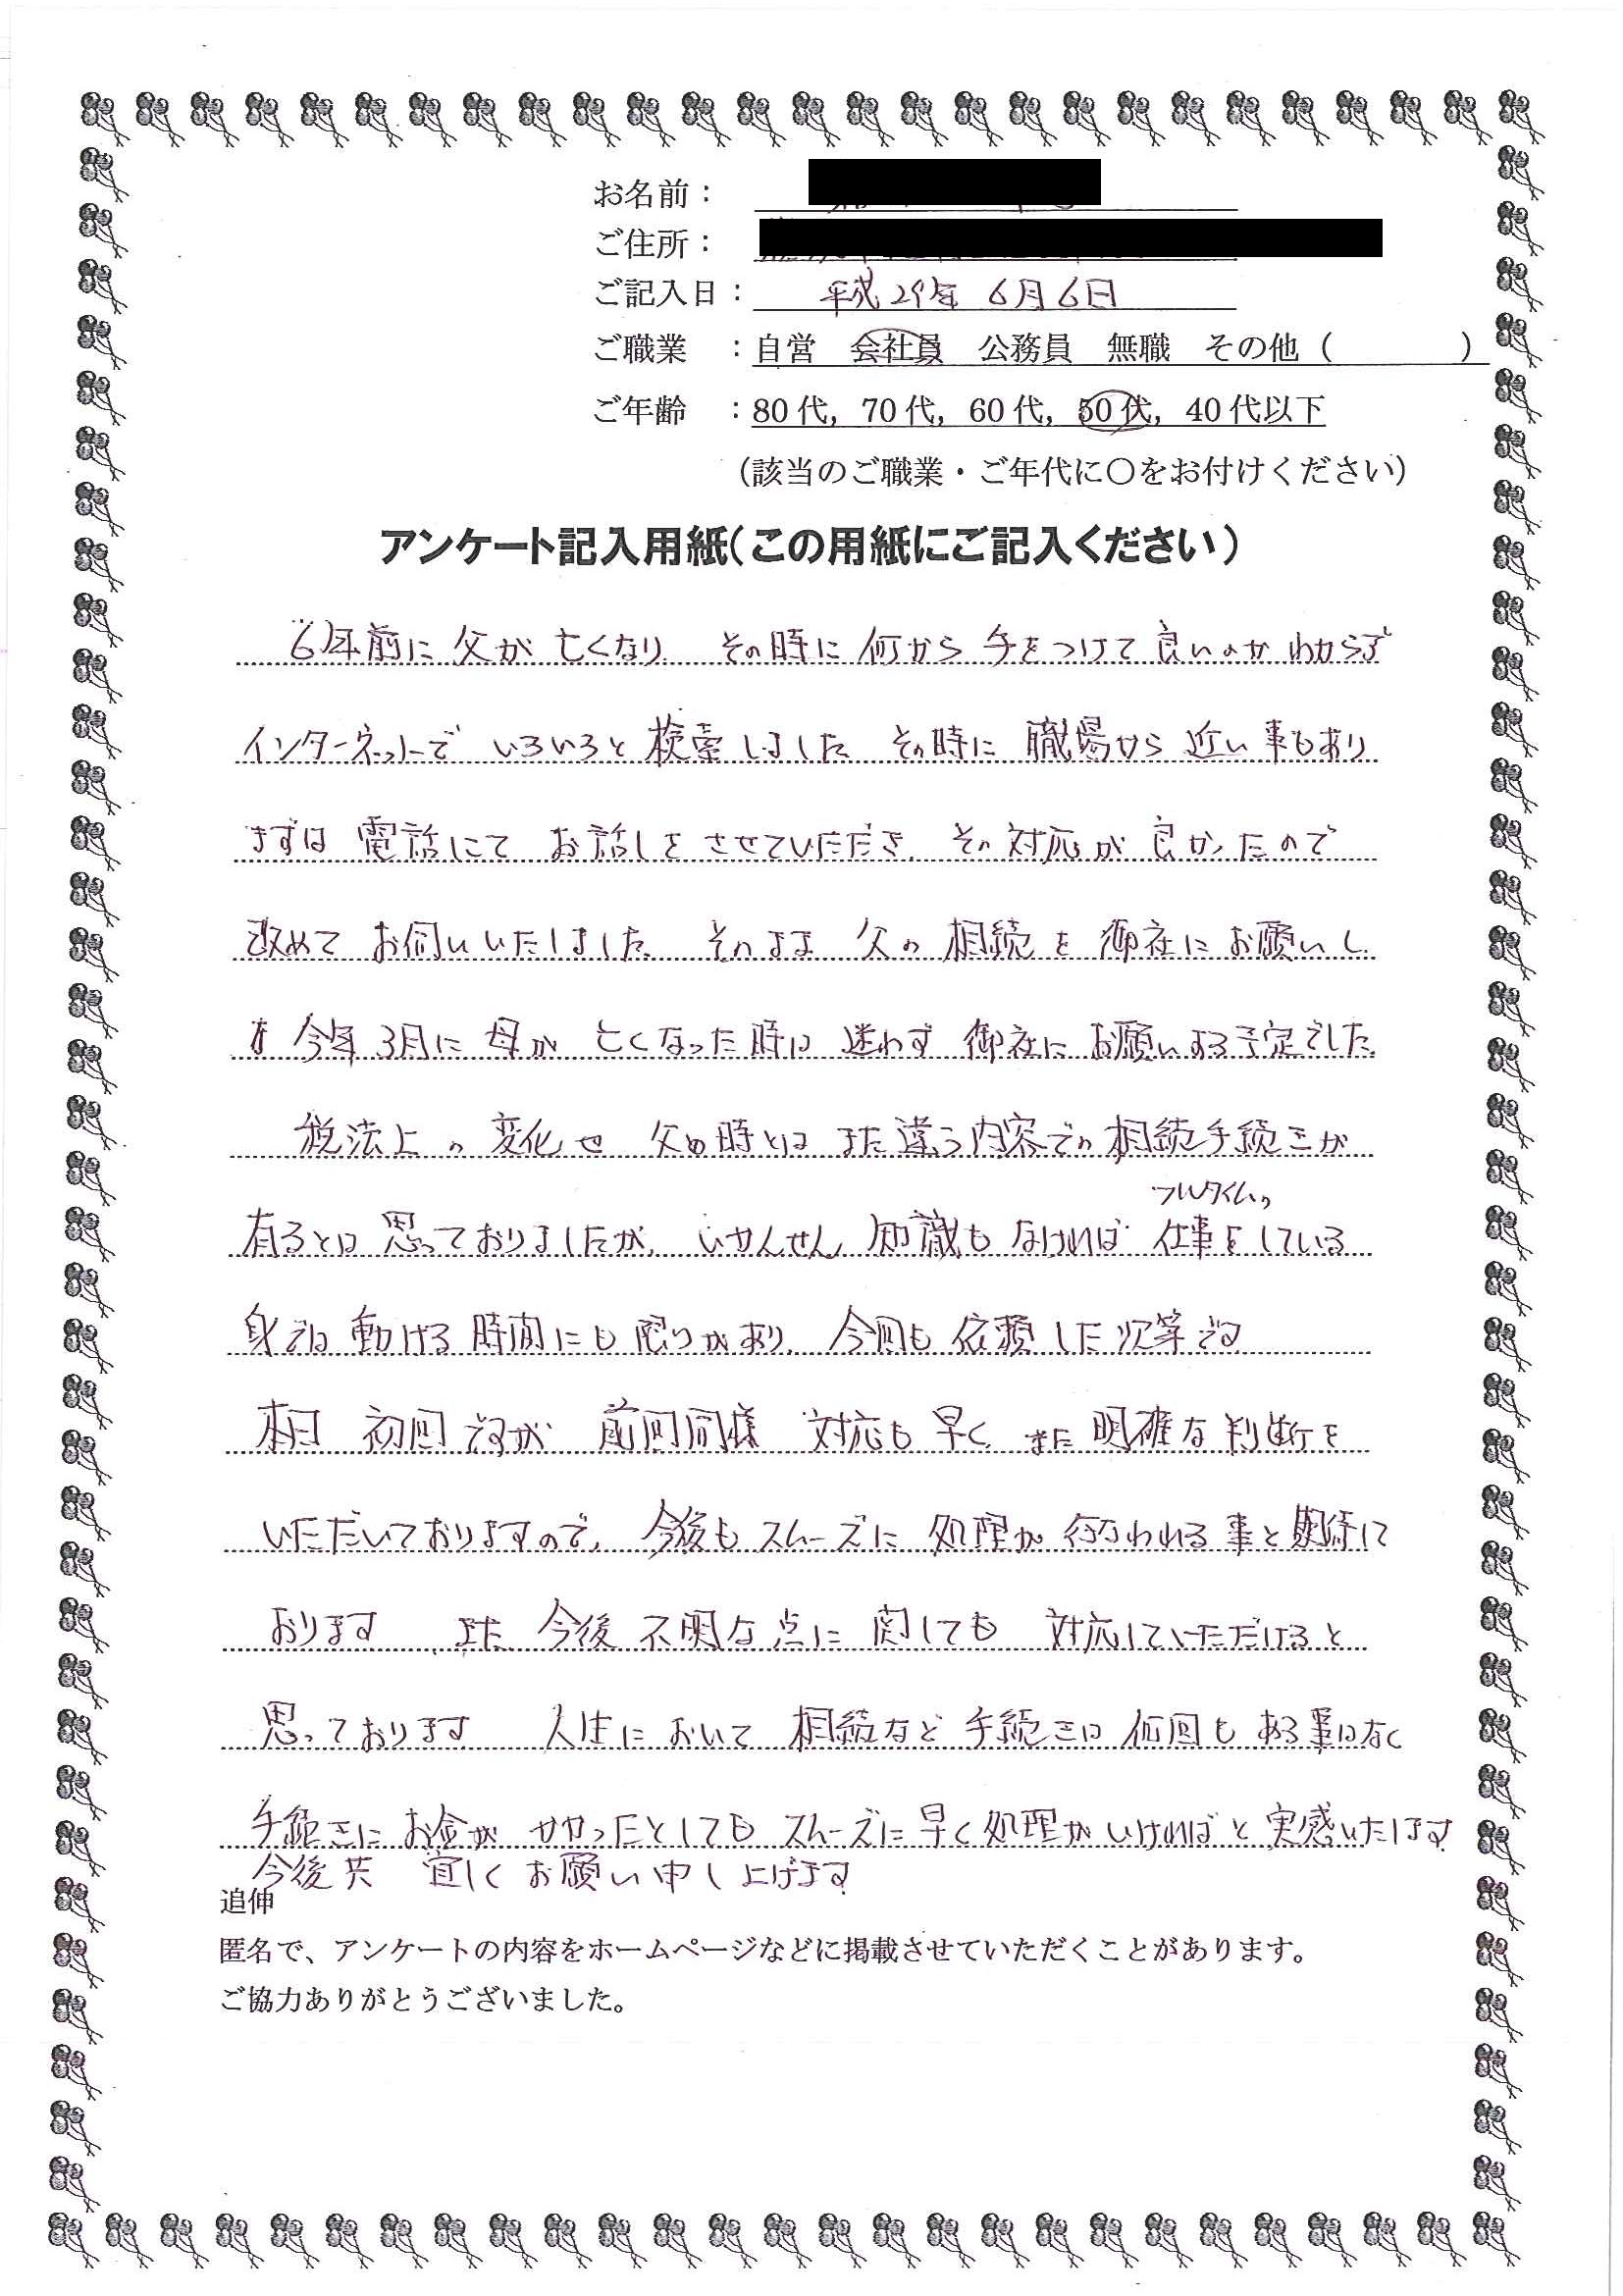 お名前：
ご住所：
ご記入日： 平成29年 6月6日
ご職業 ：自営 会社員 公務員 無職 その他（ ）
ご年齢 ：80代，70代，60代，50代，40代以下
（該当のご職業・ご年代に〇をお付けください）
アンケート記入用紙（この用紙にご記入ください）
6年前に 父が 亡くなり その時に 何から 手をつけて 良いのか わからず
インターネットで いろいろと 検索しました その時に 職場から 近い 事もあり
まずは 電話にて お話しを させていただき、その 対応が 良かったので
改めて お伺いいたしました そのまま 父の 相続を 御社にお願いし
今年 3月に 母が 亡くなった時は 迷わず 御社に お願いする予定でした
税法上の 変化や 父の時とは また違う内容での相続手続きが
フルタイムの
有るとは 思っておりましたが、いかんせん 知識も なければ 仕事をしている
身では 動ける 時間にも 限りがあり、今回も 依頼した次第です
本日 初回ですが 前回同様 対応も 早く、また 明確な 判断を
いただいておりますので、今後も スムーズに 処理が 行なわれる 事と 期待して
おります また 今後 不明な 点に 関しても 対応していただけると
思っております 人生に おいて 相続など 手続きは 何回も ある事はなく
手続きに お金が かかったとしても スムーズに 早く 処理が いければと 実感いたします
今後共 宜しく お願い申し上げます
追伸
匿名で、アンケートの内容をホームページなどに掲載させていただくことがあります。
ご協力ありがとうございました。